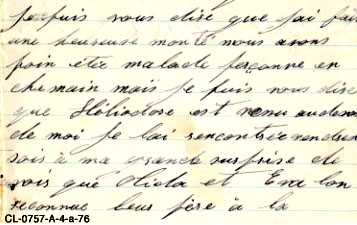 je puis vous dire que j'ai fait
une heureuse monté nous avons
poin étée malade personne en
chemain mais je puis vous dire
que Héliodore est venu audevan
de moi je lai rencontrée vendredi
soir à ma grande surprise de
voir que Olida et Eva lon
reconnue leur père à la
CL-0757-A-4-a-76